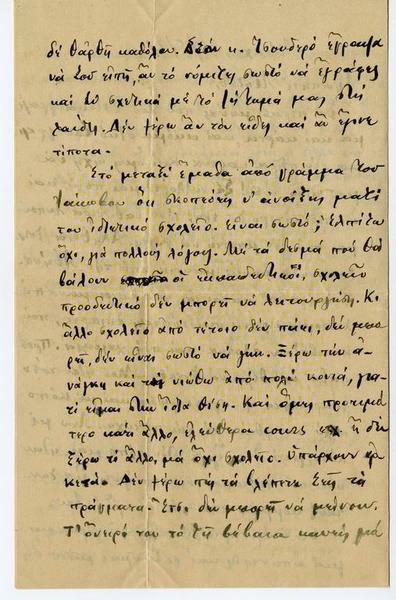 δὲ θἀρθῆ καθόλου. Στὸν κ. Τσουδερὸ ἔγραψα
νὰ σου εἰπῆ, ἂν τὸ νόμιζες σωστὸ νὰ ἔγραφες
καὶ σὺ σχετικὰ μὲ τὸ ζήτημά μας στὴ
Δὲν ξέρω ἂν τὸν εἶδες καὶ ἂν ἔγινε
τίποτα.
Στὸ μεταξὺ ἔμαθα ἀπὸ γράμμα τοῦ
ὅτι σκοπεύεις ν' ἀνοίξης μαζί
του ἰδιωτικὸ σχολεῖο. Εἶναι σωστό; Ἐλπίζω
ὄχι, γιὰ πολλοὺς λόγους. Μὲ τὰ δεσμὰ ποὺ θὰ
βάλουν οἱ ἐκπαιδευτικοί, σχολεῖο
προοδευτικὸ δὲν μπορεῖ νὰ λειτουργήση. Κι
ἄλλο σχολεῖο ἀπὸ τέτοιο δὲν πάει, δὲν μπο-
ρεῖ, δὲν εἶναι σωστὸ νὰ γίνη. Ξέρω τὴν ἀ-
νάγκη καὶ τὴ νιώθω ἀπὸ πολὺ κοντά, για-
τὶ εἶμαι στὴν ἴδια θέση. Καὶ ὅμως προτιμό-
τερο κάτι ἄλλο, ἐλεύθερα ἢ δὲν
ξέρω τί ἄλλο, μὰ ὄχι σχολεῖο. Ὑπάρχουν ἀρ-
κετά. Δὲν ξέρω πῶς τὰ βλέπετε ἐσεῖς τὰ
πράγματα. Ἔτσι δὲν μπορεῖ νὰ μείνουν.
Τ' ὄνειρό του τὸ ζῆ βέβαια κανεὶς μὰ